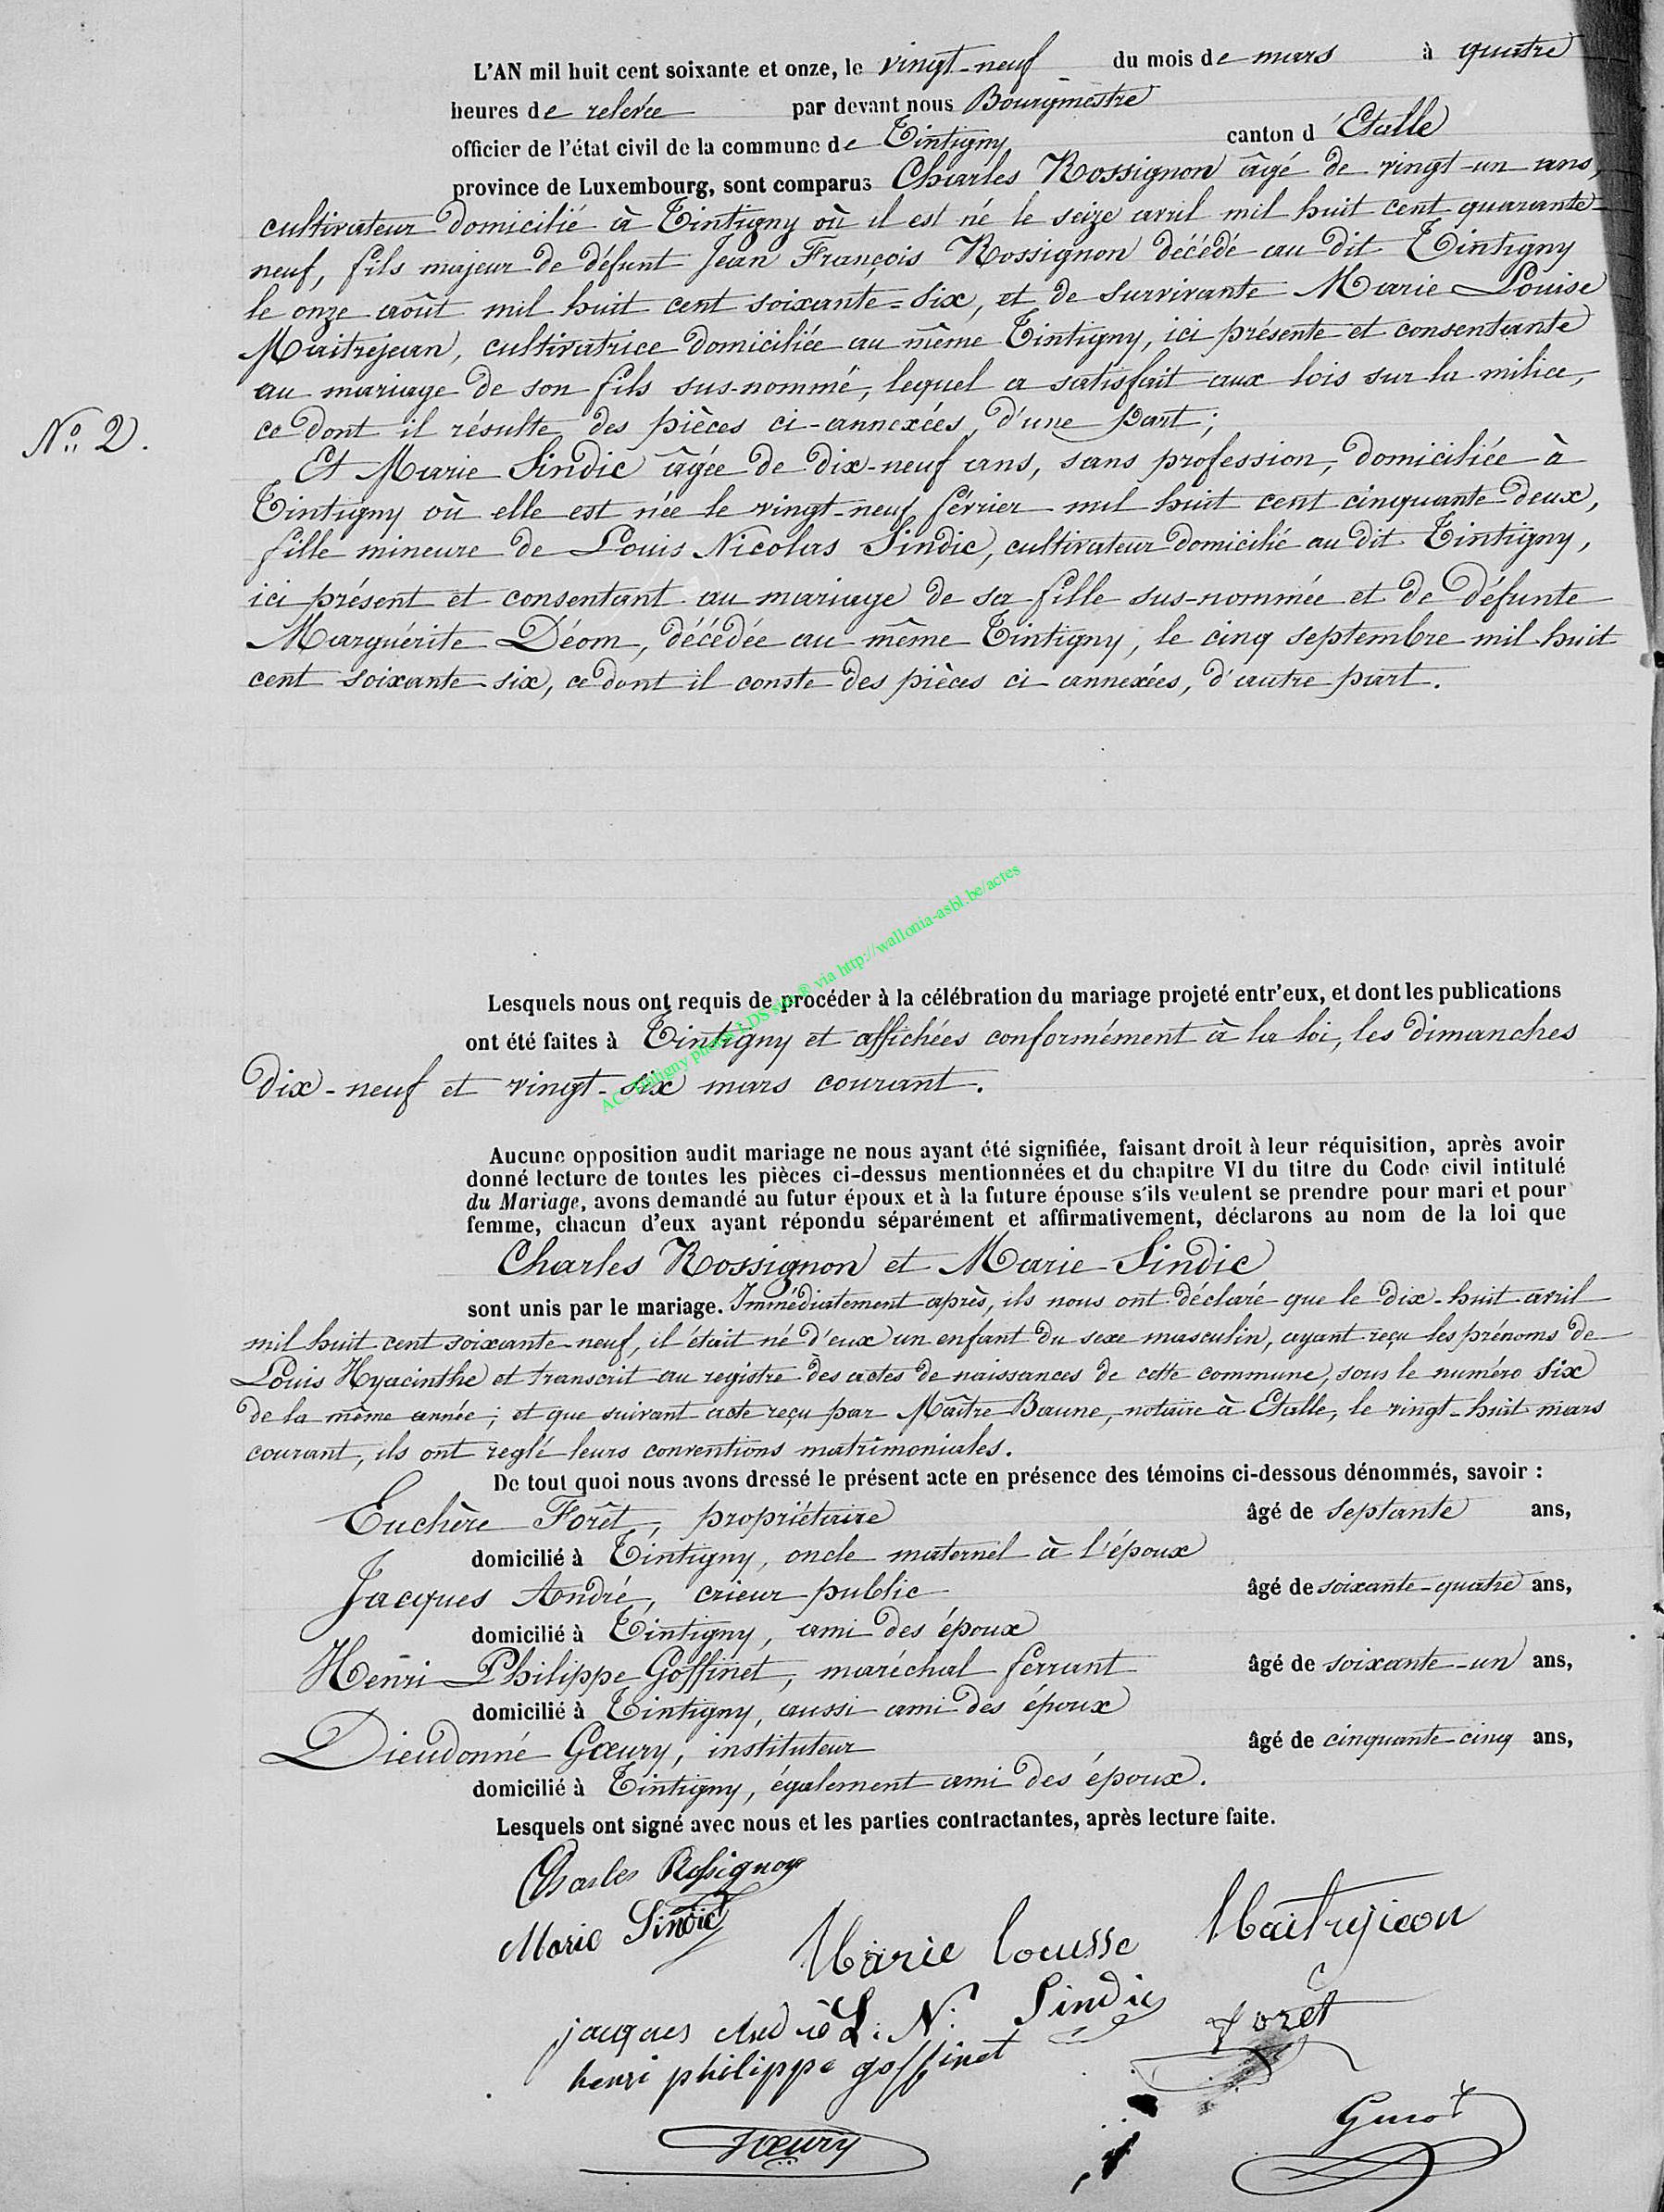 L'AN mil huit cent soixante et onze, le vingt-neuf du mois de mars à quatre
heures de relevée par devant nous Bourgmestre
officier de l'état civil de la commune de Tintigny canton d'Etalle
province de Luxembourg, sont comparus Charles Rossignon âgé de vingt-un ans,
cultivateur domicilié à Tintigny où il est né le seize avril mil huit cent quarante-
neuf, fils majeur de défunt Jean François Rossignon décédé au dit Tintigny
le onze août mil huit cent soixante-six, et de survivante Marie Louise
Maitrejean, cultivatrice domiciliée au même Tintigny, ici présente et consentante
au mariage de son fils sus-nommé, lequel a satisfait aux lois sur la milice,
No. 2.
ce dont il résulte des pièces ci-annexées, d'une part;
Et Marie Sindic âgée de dix-neuf ans, sans profession, domiciliée à
Tintigny où elle est née le vingt-neuf février mil huit cent cinquante-deux,
fille mineure de Louis Nicolas Sindic, cultivateur domicilié au dit Tintigny,
ici présent et consentant au mariage de sa fille sus-nommée et de défunte
Marguérite Déom, décédée au même Tintigny, le cinq septembre mil huit
cent soixante six, ce dont il conste des pièces ci annexées, d'autre part.
AC Tintigny photos LDS via http://wallonia-asbl.be/actes
Lesquels nous ont requis de procéder à la célébration du mariage projeté entr'eux, et dont les publications
ont été faites à Tintigny et affichées conformément à la loi, les dimanches
dix-neuf et vingt-six mars courant.
Aucune opposition audit mariage ne nous ayant été signifiée, faisant droit à leur réquisition, après avoir
donné lecture de toutes les pièces ci-dessus mentionnées et du chapitre VI du titre du Code civil intitulé
du Mariage, avons demandé au futur époux et à la future épouse s'ils veulent se prendre pour mari et pour
femme, chacun d'eux ayant répondu séparément et affirmativement, déclarons au nom de la loi que
Charles Rossignon et Marie Sindic
sont unis par le mariage. Immédiatement après, ils nous ont déclaré que le dix-huit avril
mil huit cent soixante-neuf, il était né d'eux un enfant du sexe masculin, ayant reçu les prénoms de
Louis Hyacinthe et transcrit au registre des actes de naissances de cette commune, sous le numéro six
de la même année; et que suivant acte reçu par Maître Baune, notaire à Etalle, le vingt-huit mars
courant, ils ont reglé leurs conventions matrimoniales.
De tout quoi nous avons dressé le présent acte en présence des témoins ci-dessous dénommés, savoir :
Euchère Forêt, propriétaire âgé de septante ans,
domicilié à Tintigny, oncle maternel à l'époux
Jacques André, crieur public âgé de soixante-quatre ans,
domicilié à Tintigny, ami des époux
Henri Philippe Goffinet, maréchal ferrant âgé de soixante-un ans,
domicilié à Tintigny, aussi ami des époux
Dieudonné Gœury, instituteur âgé de cinquante-cinq ans,
domicilié à Tintigny, également ami des époux.
Lesquels ont signé avec nous et les parties contractantes, après lecture faite.
Charles Rossignon
Marie Sindic
Marie Lousse Maitrejean
jacques André L. N. Sindic foret
henri philippe goffinet
Gœury